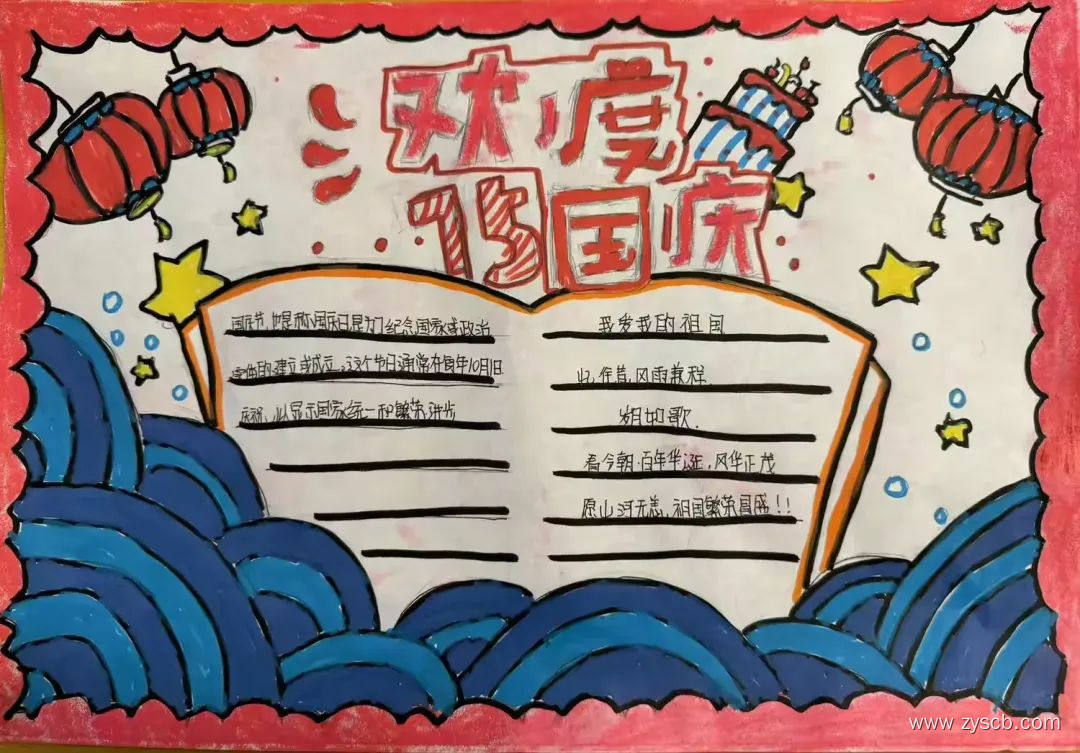 欢度
75国庆
国庆节,也是国庆日是为了纪念国家或政治
的建立或成立,这个节日通常在每年10月1日
庆祝,以显示国家统一和繁荣进步
我爱我的祖国
忆往昔,风雨兼程
岁月如歌.
看今朝·百年华诞,风华正茂
愿山河无恙,祖国繁荣昌盛!!
www.zyscb.com